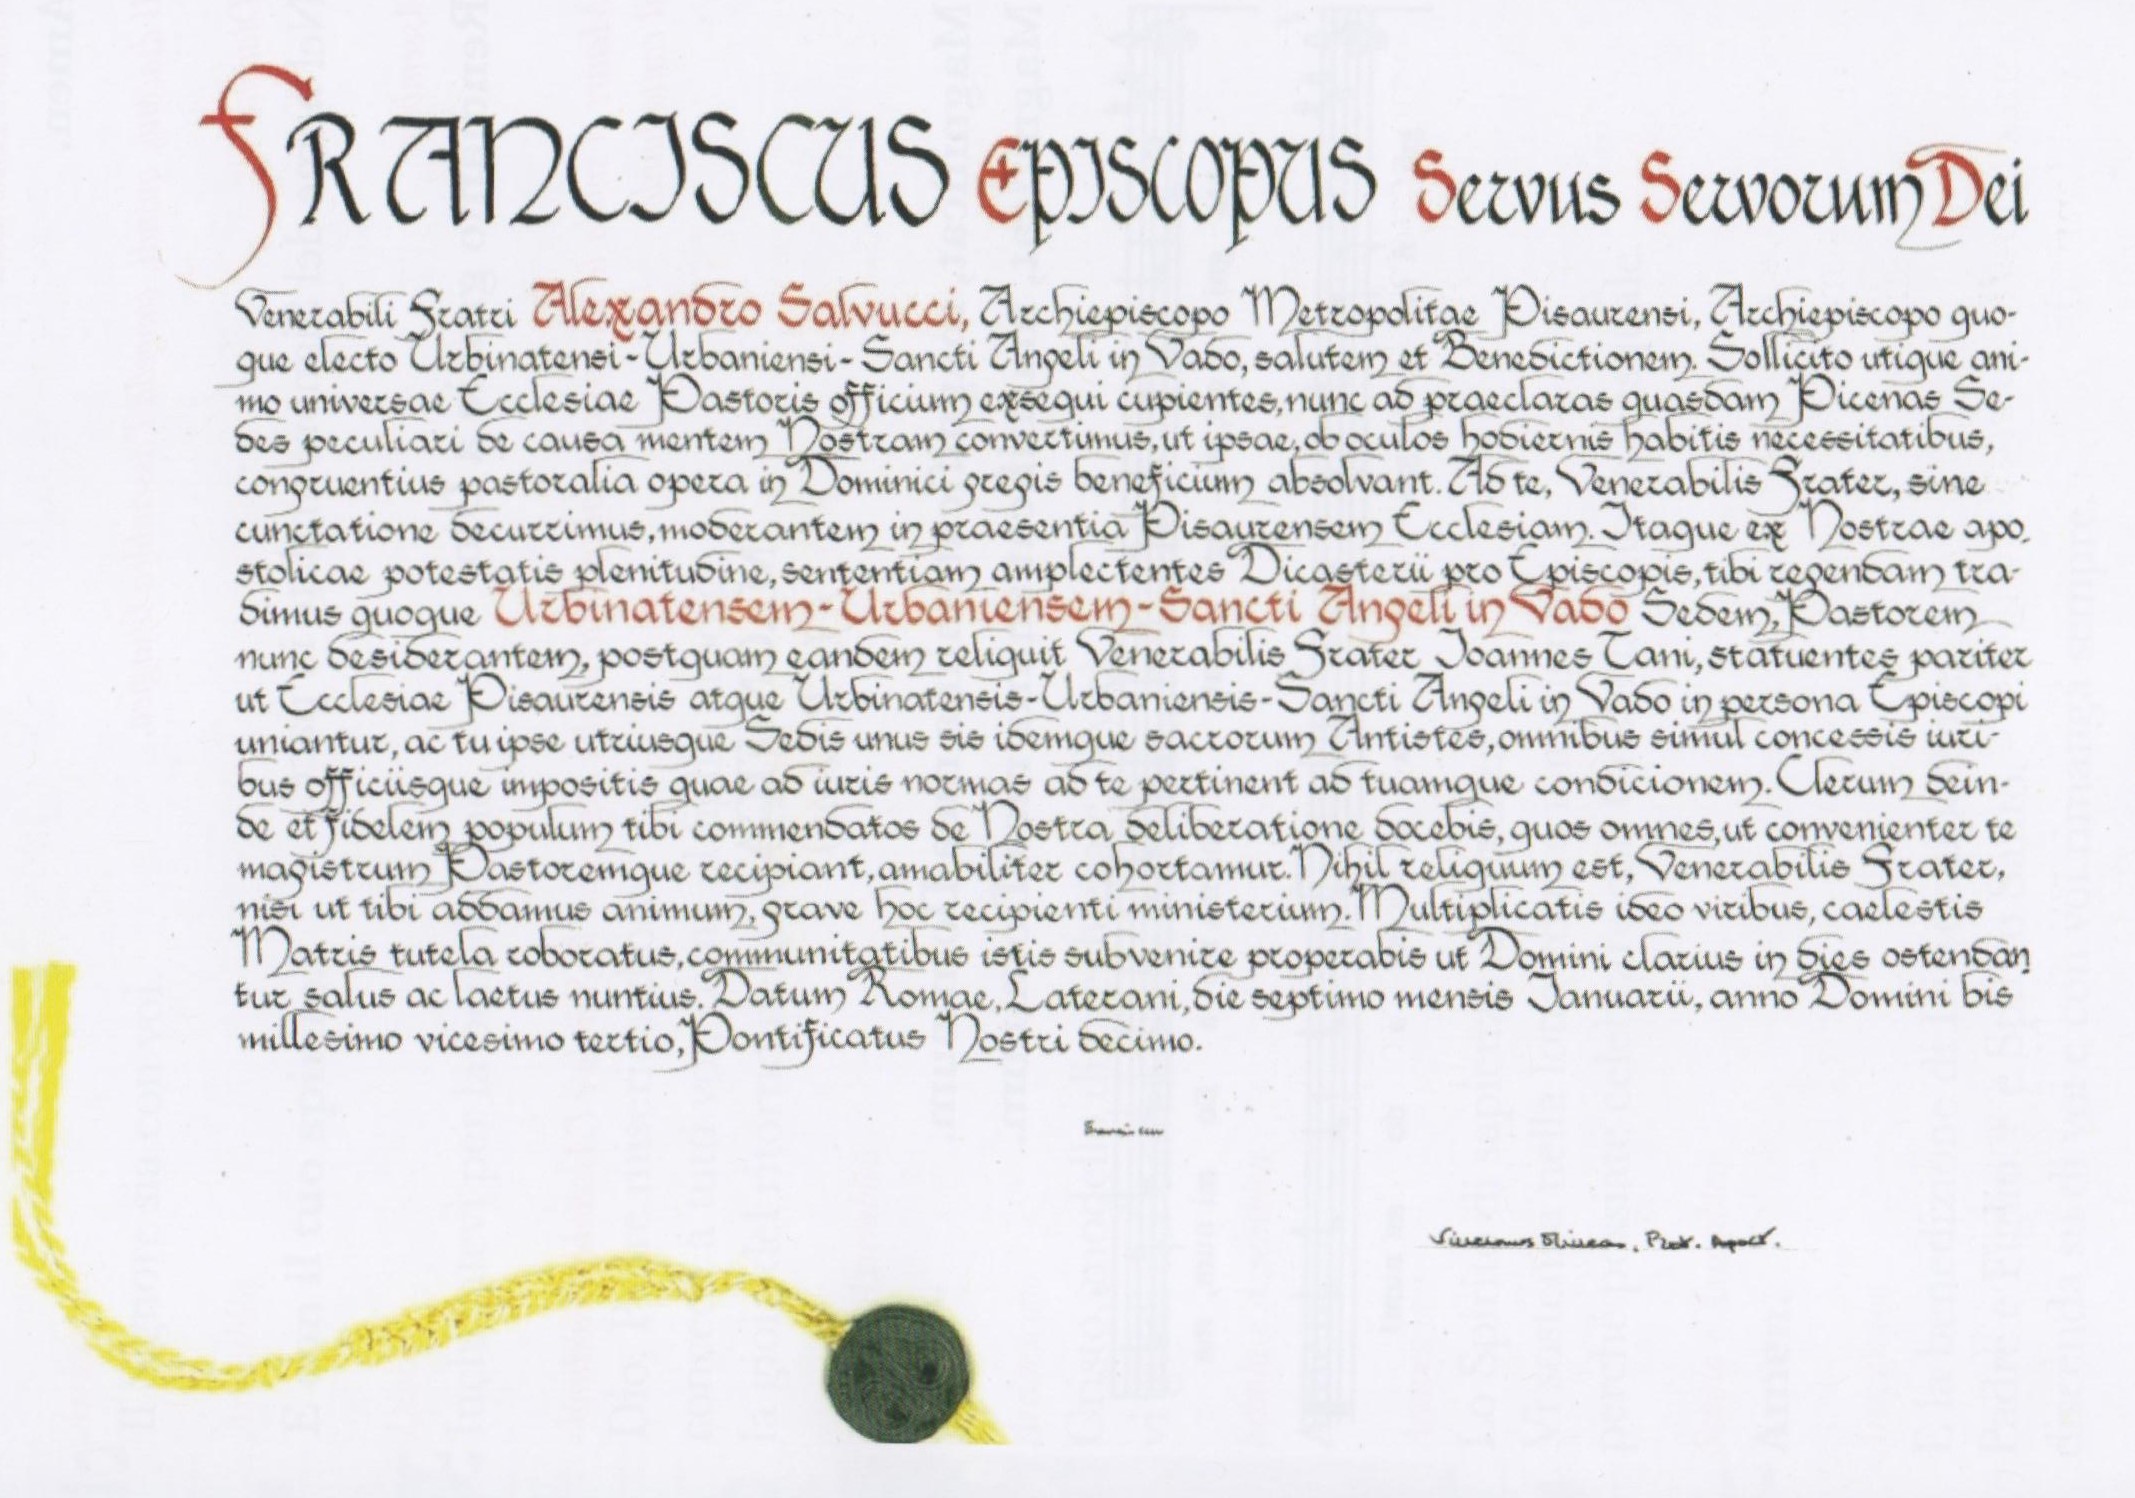 FRANCISCUS EPISCOPUS Servus Servorum Dei
Venerabili Fratri Alexandro Salvucci, Archiepiscopo Metropolitae Pisaurensi, Archiepiscopo quo-
que electo Urbinatensi-Urbaniensi-Sancti Angeli in Vado, salutem et Benedictionem. Sollicito utique ani-
mo universae Ecclesiae Pastoris officium exsequi cupientes, nunc ad praeclaras quasdam Picenas Se-
des peculiari de causa mentem Nostram convertimus, ut ipsae, ob oculos hodiernis habitis necessitatibus,
congruentius pastoralia opera in Dominici gregis beneficium absolvant. Ad te, Venerabilis Frater, sine
cunctatione decurrimus, moderantem in praesentia Pisaurensem Ecclesiam. Itaque ex Nostrae apo-
stolicae potestatis plenitudine, sententiam amplectentes Dicasterii pro Episcopis, tibi regendam tra-
dimus quoque Urbinatensem-Urbaniensem-Sancti Angeli in Vado Sedem, Pastorem
nunc desiderantem, postquam eandem reliquit Venerabilis Frater Ioannes Tani, statuentes pariter
ut Ecclesiae Pisaurensis atque Urbinatensis-Urbaniensis-Sancti Angeli in Vado in persona Episcopi
uniantur, ac tu ipse utriusque Sedis unus sis idemque sacrorum Antistes, omnibus simul concessis iuri-
bus officiisque impositis quae ad iuris normas ad te pertinent ad tuamque condicionem. Clerum dein-
de et fidelem populum tibi commendatos de Nostra deliberatione docebis, quos omnes, ut convenienter te
magistrum Pastoremque recipiant, amabiliter cohortamur. Nihil reliquum est, Venerabilis Frater,
nisi ut tibi addamus animum, grave hoc recipienti ministerium. Multiplicatis ideo viribus, caelestis
Matris tutela roboratus, communitatibus istis subvenire properabis ut Domini clarius in dies ostendan
tur salus ac laetus nuntius. Datum Romae, Laterani, die septimo mensis Ianuarii, anno Domini bis
millesimo vicesimo tertio, Pontificatus Nostri decimo.
Franciscus
Prot. Apost.